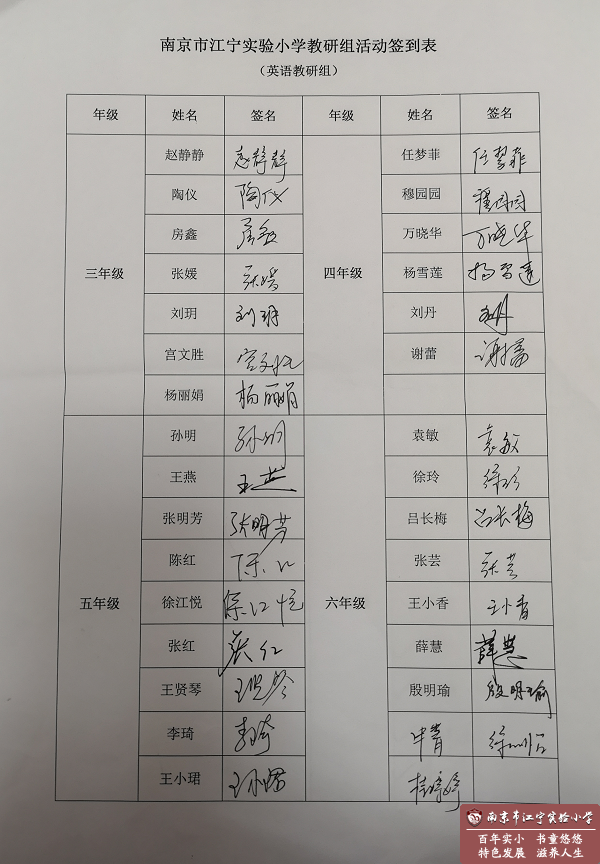 南京市江宁实验小学教研组活动签到表
（英语教研组）
年级 姓名 签名 年级 姓名 签名
三年级 四年级
赵静静 赵静静 任梦菲 任梦菲
陶仪 陶仪 穆园园 穆园园
房鑫 房鑫 万晓华 万晓华
张媛 张媛 杨雪莲 杨雪莲
刘玥 刘玥 刘丹 刘丹
宫文胜 宫文胜 谢蕾 谢蕾
杨丽娟 杨丽娟
五年级 六年级
孙明 孙明 袁敏 袁敏
王燕 王燕 徐玲 徐玲
张明芳 张明芳 吕长梅 吕长梅
陈红 陈红 张芸 张芸
徐江悦 徐江悦 王小香 王小香
张红 张红 薛慧 薛慧
王贤琴 王贤琴 殷明瑜 殷明瑜
李琦 李琦
王小珺 王小珺
南京市江宁实验小学
百年实小 书童悠悠
特色发展 滋养人生